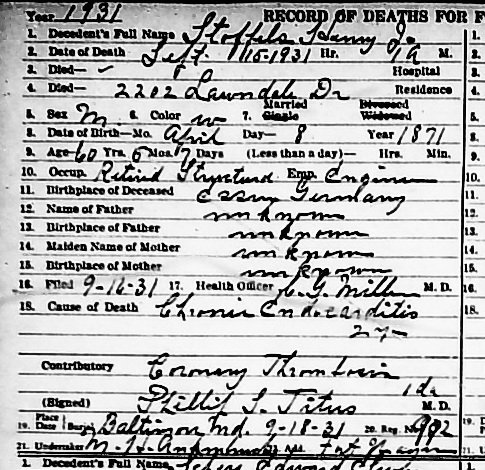 Year 1931 RECORD OF DEATHS FOR F
1. Decedent's Full Name Stoffels Henry Jo 1.
2. Date of Death Sept 15-1931 Hr. 1A M. 2.
3. Died— Hospital 3.
4. Died— 2202 Lawndale Dr Residence 4.
5. Sex M. 6. Color w 7. Married Single Divorced Widowed 5.
8. Date of Birth—Mo. April Day— 8 Year 1871 8.
9. Age 60 Yrs. 5 Mos. 7 Days (Less than a day)— Hrs. Min. 9.
10. Occup. Retired Structural Emp. Engineer 10.
11. Birthplace of Deceased Essen Germany 11.
12. Name of Father unknown 12.
13. Birthplace of Father unknown 13.
14. Maiden Name of Mother unknown 14.
15. Birthplace of Mother unknown 15.
16. Filed 9-16-31 17. Health Officer C. G. Miller M. D. 16.
18. Cause of Death Chronic Endocarditis 18.
2 y—
Contributory Coronary Thrombosis
1 da
(Signed) Phillip S. Titus M. D.
19. Place Date Burial Baltimore Md. 9-18-31 20. Reg. No. 992 19.
21. Undertaker M. H. Fort Wayne 21.
1. Decedent's Full Name Edward 1.